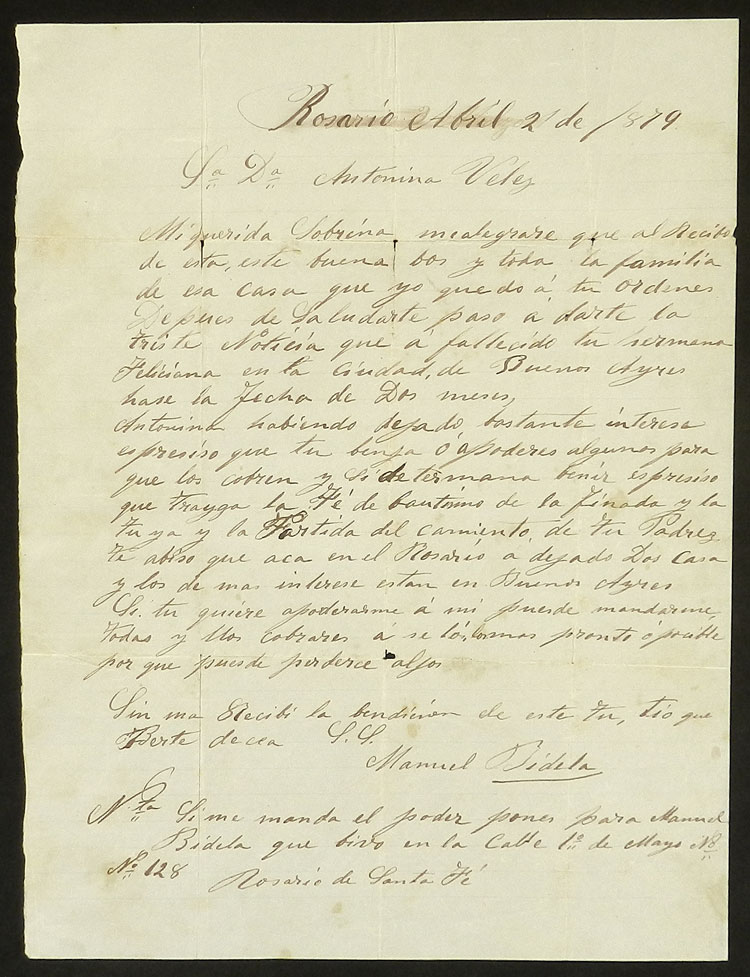 Rosario Abril 2 de /1879
Sa Da Antonina Velez
Mi querida Sobrina mealegrare que al Recibo
de esta, este buena bos y toda la familia
de esa casa que yo quedo á tu ordenes
Depues de Saludarte paso á darte la
triste Noticia que á fallecido tu hermana
Feliciana en la Ciudad, de Buenos Ayres
hase la fecha de Dos meses,
Antonina habiendo dejado bastante interese
espresiso que tu benga ó apoderes algunos para
que los cobren y Si determana benir espresiso
que trayga la Fé de bautismo de la finada y la
tuya y la Partida del camiento, de tu Padrez
te abiso que aca en el Rosario á dejado Dos Casa
y los de mas interese estan en Buenos Ayres
Si tu quiere apoderarme á mi puesde mandarme,
todas y llos cobrares á se lo, lomas pronto ó posible
por que puesde perderce aljos
Sin ma Recibi la bendicion de este tu, tio que
Berte decea S.S.
Manuel Bidela
Nta Sime manda el poder pones para Manuel
Bidela que bivo en la Calle 1o de Mayo No
No 128
Rosario de Santa Fé